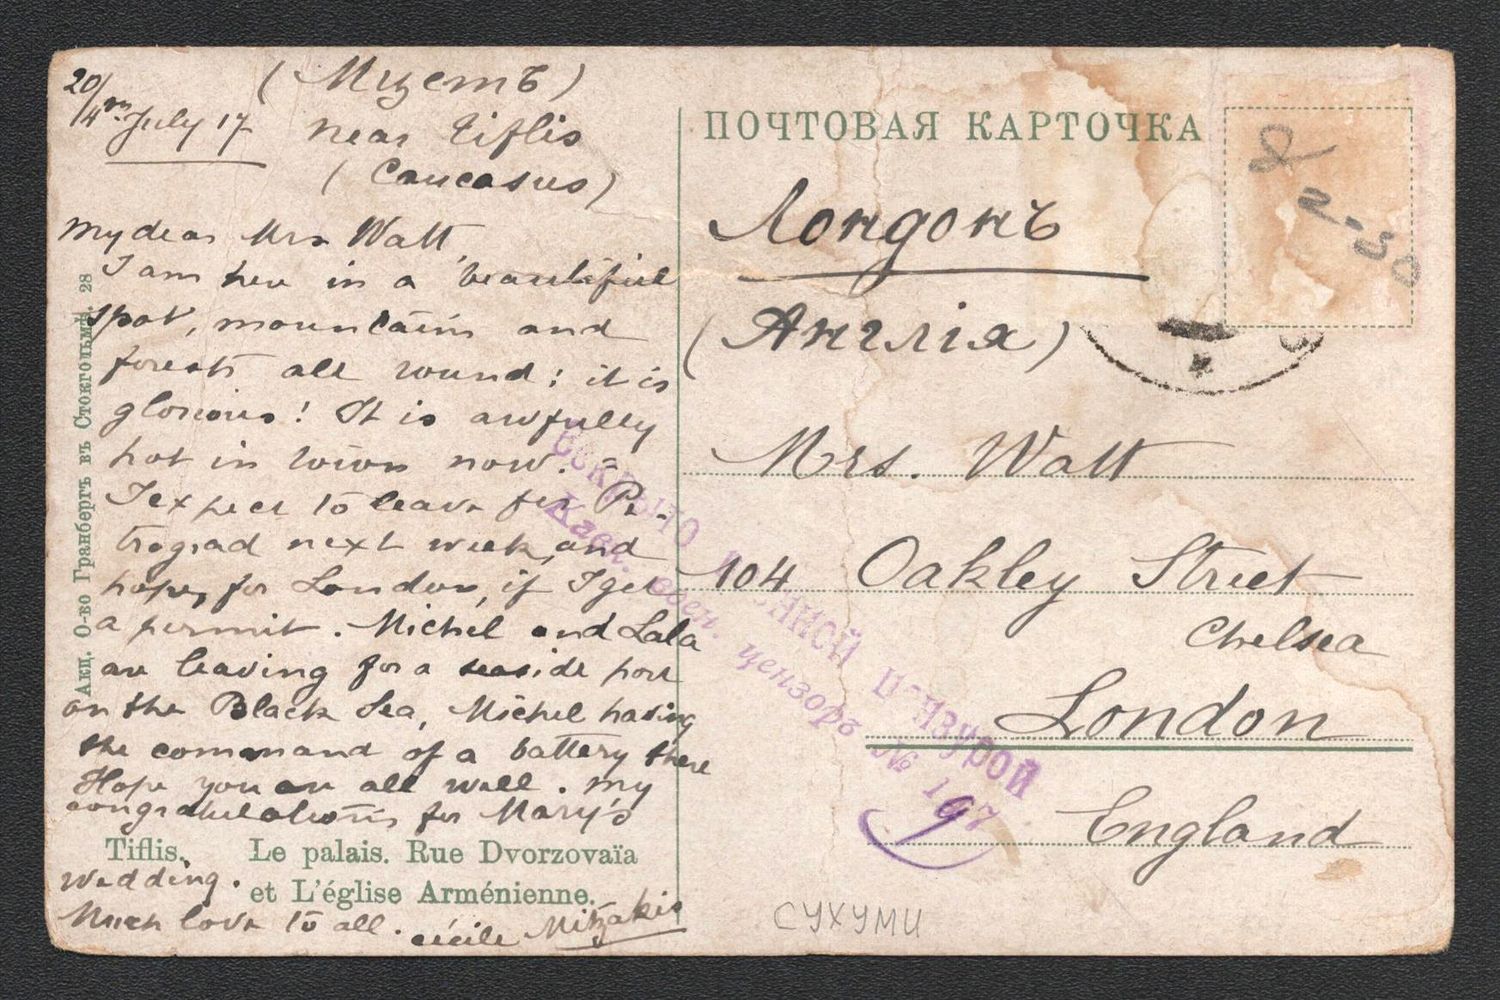 20/4th July 17
(Мцетъ)
near Tiflis
(Caucasus)
My dear Mrs Watt,
I am here in a beautiful
spot, mountains and
forests all round; it is
glorious! It is awfully
hot in town now. —
I expect to leave for Pe-
trograd next week, and
hope, for London, if I get
a permit. Michel and Lala
are leaving for a seaside port
on the Black Sea, Michel having
the command of a battery there
Hope you are all well. My
congratulations for Mary's
wedding.
Much love to all. Cécile Mitzakis
Tiflis. Le palais. Rue Dvorzovaïa
et L'église Arménienne.
Акц. О-во Гранбергъ въ Стокгольмѣ. 28
ПОЧТОВАЯ КАРТОЧКА
Лондонъ
(Англія)
Mrs. Watt
104 Oakley Street
Chelsea
London
England
ВСКРЫТО ВОЕННОЙ ЦЕНЗУРОЙ
Кавк. воен. цензоръ № 197
СУХУМИ